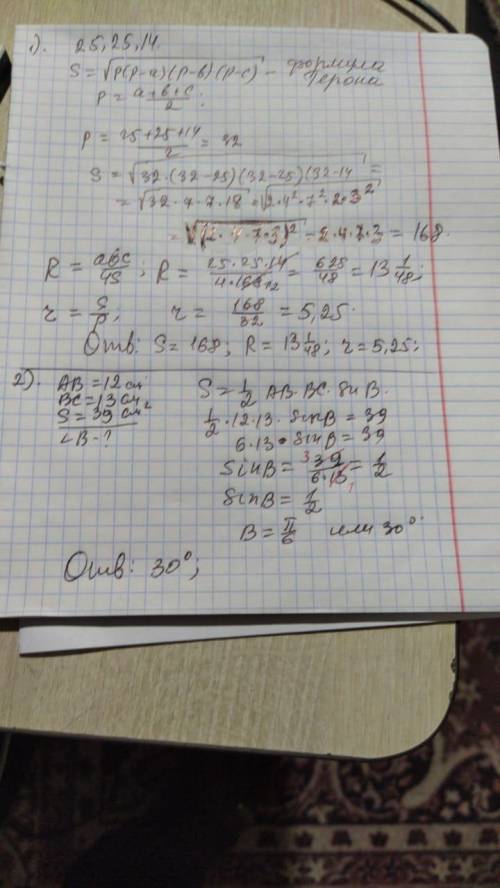 1). 25, 25, 14.
S = √(p(p-a)(p-b)(p-c)) - формула Герона
p = (a+b+c)/2;
p = (25+25+14)/2 = 32
S = √(32·(32-25)(32-25)(32-14)) =
= √(32·7·7·18) = √(2·4²·7²·2·3²)
= √((2·4·7·3)²) = 2·4·7·3 = 168.
R = abc/4S; R = (25·25·14)/(4·168) 12 = 625/48 = 13 1/48;
r = S/p; r = 168/32 = 5,25.
Отв: S = 168; R = 13 1/48; r = 5,25;
2). AB = 12 см
BC = 13 см
S = 39 см²
∠B - ?
S = 1/2 AB·BC·sin B.
1/2·12·13·sin B = 39
6·13·sin B = 39
sin B = 3 39/(6·13) 1 = 1/2
sin B = 1/2
B = π/6 или 30°.
Отв: 30°;